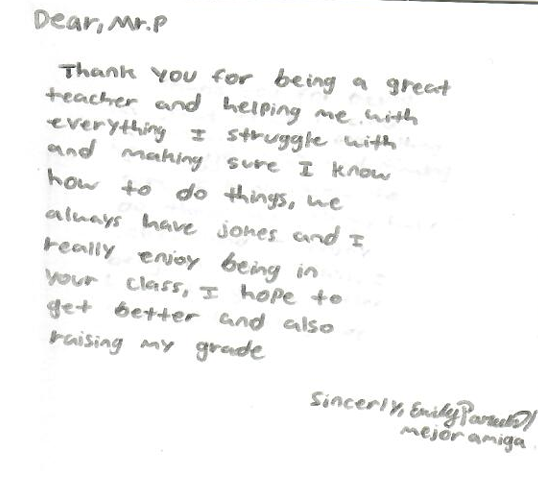 Dear, Mr.P
Thank you for being a great
teacher and helping me with
everything I struggle with
and making sure I know
how to do things, we
always have jokes and I
really enjoy being in
your class, I hope to
get better and also
raising my grade
Sincerly, Emily
mejor amiga